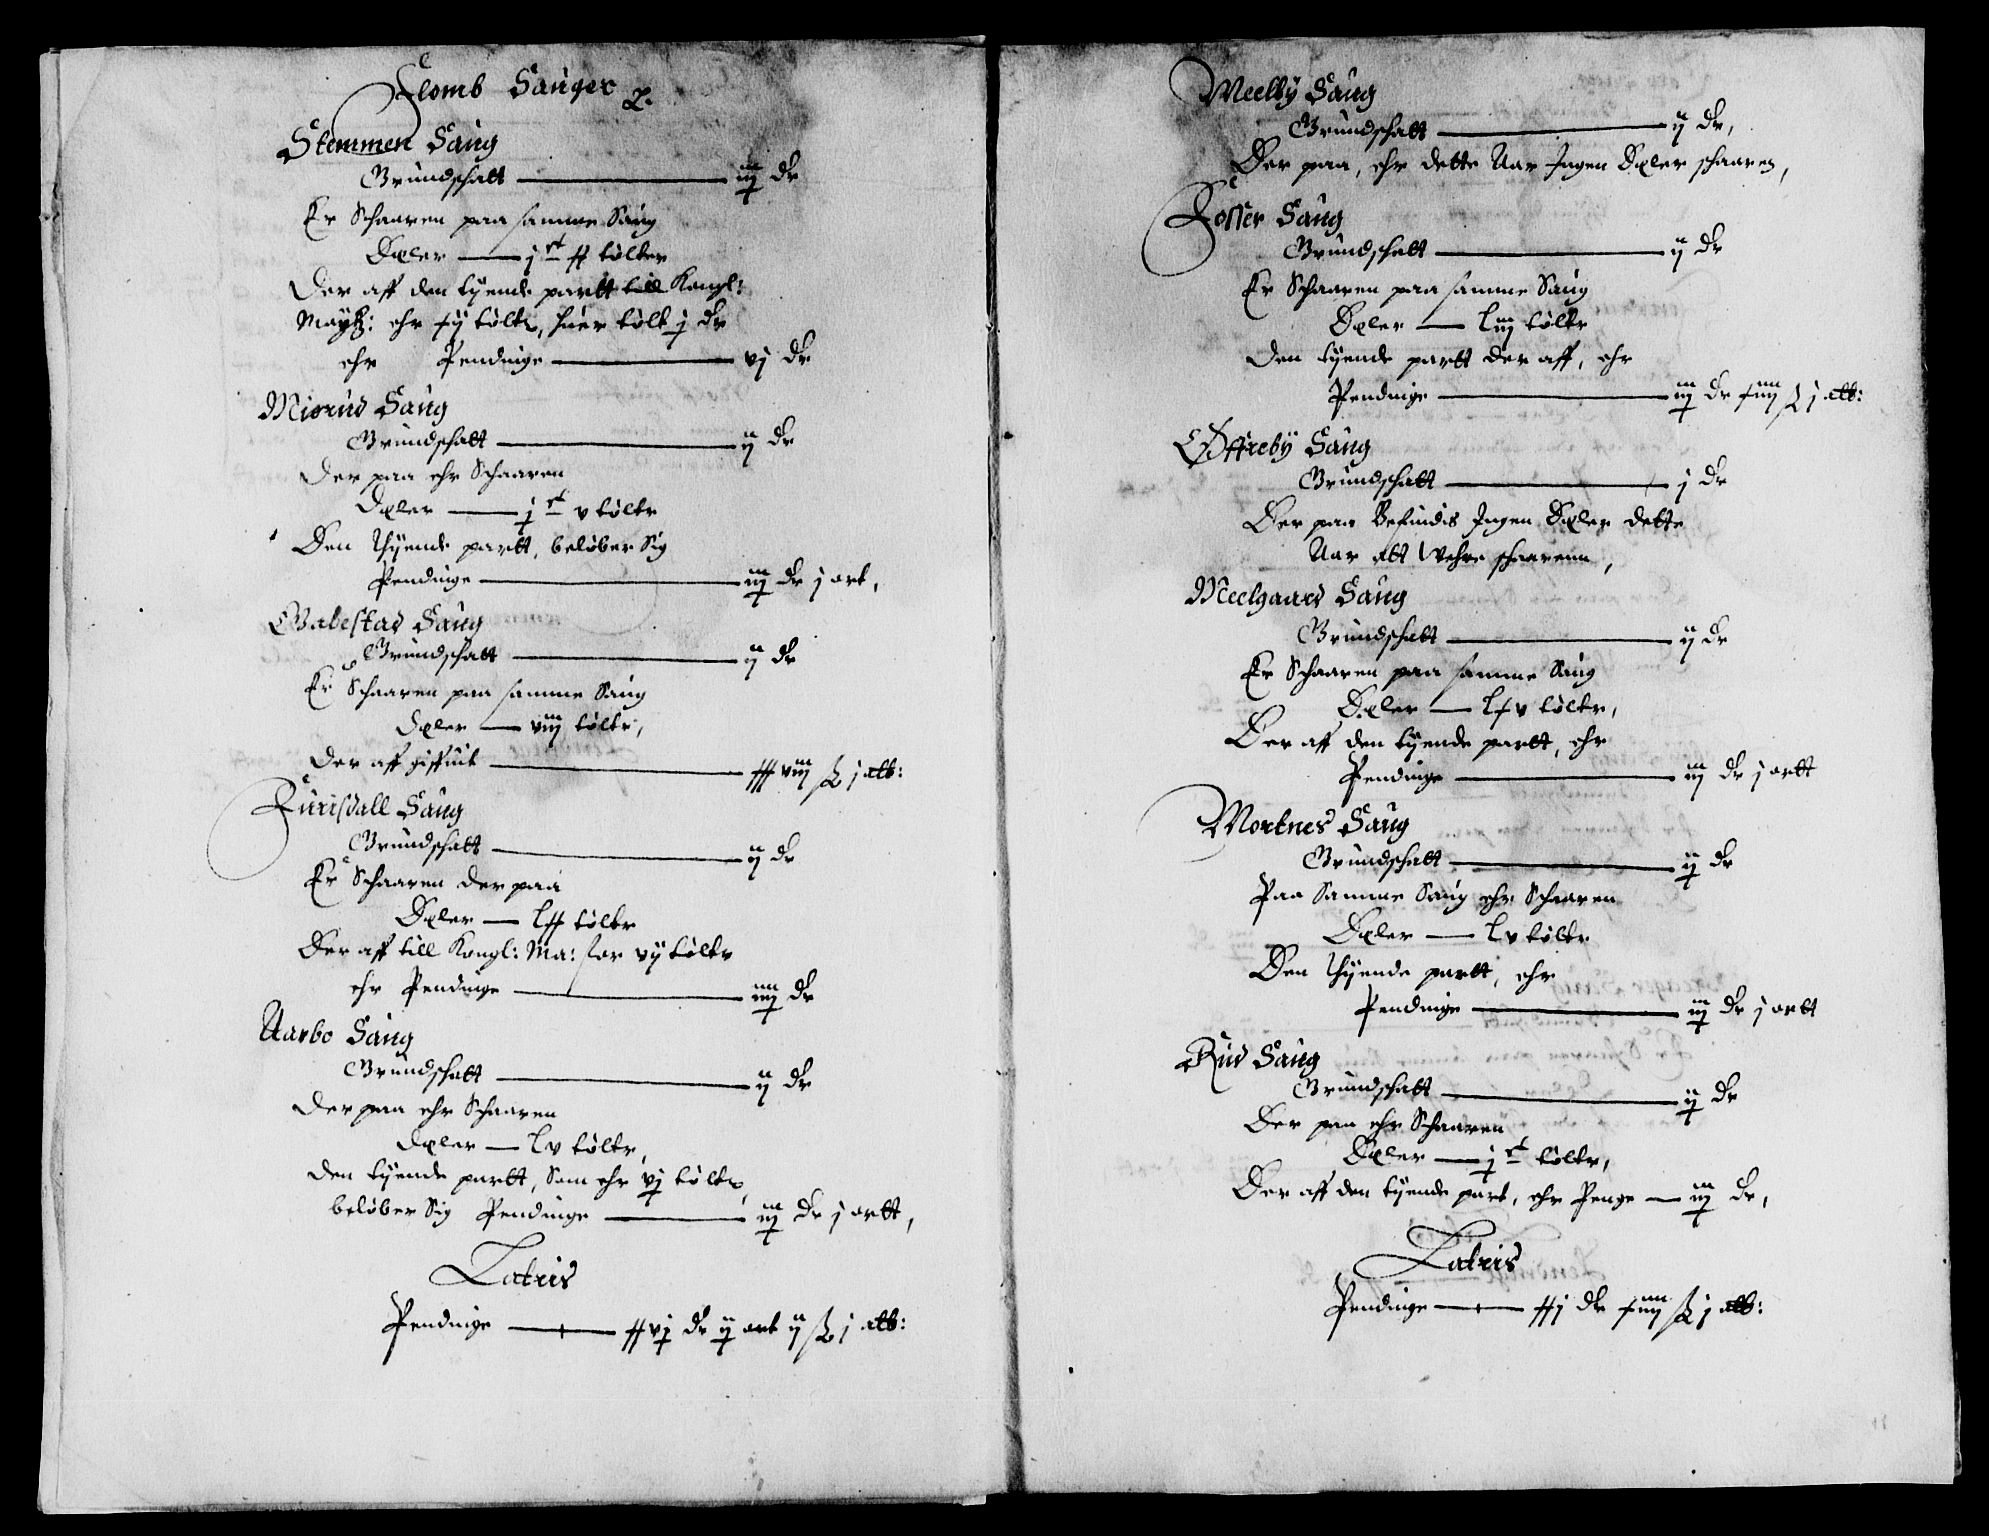 Flomb Sauger
Stemmen Saug
Grundschatt ——— iiij dr
Er Schaaren paa samme Saug
Deler —— j c xx tölter
Der aff den tyende partt till Kongl:
Maytz: ehr xij tölter, huer tölt j dr
ehr Pendinge ——— vj dr
Miørud Saug
Grundschatt ——— ij dr
Der paa ehr Schaaren
Deler —— j c v töltr
Den thyende partt, belöber Sig
Pendinge ——— iij dr j ort,
Gabestad Saug
Grundschatt ——— ij dr
Er Schaaren paa samme Saug
Deler —— viij töltr,
Der aff giffuit ——— xxxviij ß j alb:
Furisdall Saug
Grundschatt ——— ij dr
Er Schaaren der paa
Deler —— lxx töltr
Der aff till Kongl: Ma: for vij töltr
ehr Pendinge ——— iiij dr
Aarbo Saug
Grundschatt ——— ij dr
Der paa ehr Schaaren
Deler —— lv töltr,
den tyende partt, Som ehr vj tölter,
belöber Sig Pendinge ——— iij dr j ortt,
Latris
Pendinge ——— xxvj dr ij ort ij ß j alb:
Meelby Saug
Grundschatt ——— ij dr,
Der paa, ehr dette Aar Ingen Deler schaaren,
Fosser Saug
Grundschatt ——— ij dr
Er Schaaren paa samme Saug
Deler —— liij töltr
Den tyende partt der aff, ehr
Pendinge ——— iij dr xiiij ß j alb:
Øffreby Saug
Grundschatt ——— j dr
Der paa Befindis Ingen Deler dette
Aar att Wehre schaarenn,
Meelgaard Saug
Grundschatt ——— ij dr
Er Schaaren paa samme Saug
Deler —— lxv töltr,
Der aff den tyende partt, ehr
Pendinge ——— iij dr j ortt
Mortnes Saug
Grundschatt ——— ij dr
Paa Samme Saug ehr Schaaren
Deler —— lv töltr
Den thyende partt, ehr
Pendinge ——— iij dr j ortt
Rud Saug
Grundschatt ——— ij dr
Der paa ehr Schaaren
Deler —— j c töltr,
Der aff den tyende part, ehr Penge —— iij dr,
Latris
Pendinge ——— xxj dr xiiij ß j alb: